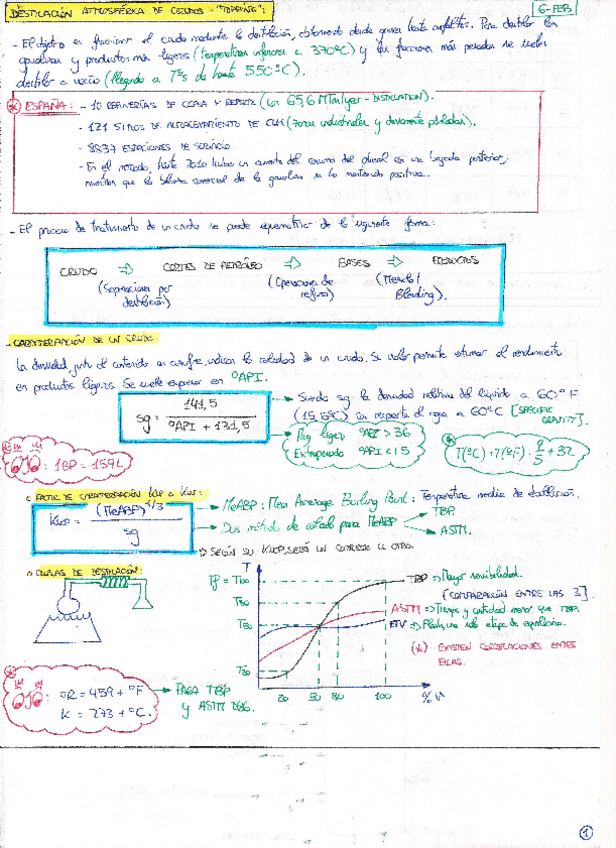 DESTILACIÓN ATMOSFÉRICA DE CRUDOS - "TOPPING":
6-FEB
- El objetivo es fraccionar el crudo mediante la destilación, obteniendo desde gases hasta asfaltos. Para destilar las
gasolinas y productos más ligeros (temperaturas inferiores a 370ºC) y las fracciones más pesadas se suelen
destilar a vacío (llegando a Tªs de hasta 550ºC).
ESPAÑA: - 10 REFINERÍAS DE CEPSA Y REPSOL (con 65,6 MTm/year - DISTILLATION).
- 121 SITIOS DE ALMACENAMIENTO DE CLH (zonas industriales y densamente pobladas).
- 8837 ESTACIONES DE SERVICIO.
- En el mercado, hasta hubo un aumento del consumo del gasoil con una bajada posterior,
mientras que la balanza comercial de la gasolina se ha mantenido positiva.
- El proceso de tratamiento de un crudo se puede esquematizar de la siguiente forma:
CRUDO ⇒ CORTES DE PETRÓLEO ⇒ BASES ⇒ PRODUCTOS
(Separaciones por destilación) (Operaciones de refino) (Mezclas / Blending).
- CARACTERIZACIÓN DE UN CRUDO:
La densidad, junto al contenido en azufre, indican la calidad de un crudo. Su valor permite estimar el rendimiento
en productos ligeros. Se suele expresar en ºAPI.
sg = 141,5 / ºAPI + 131,5
→ Siendo sg la densidad relativa del líquido a 60ºF
(15,6ºC) con respecto al agua a 60ºC [SPECIFIC GRAVITY].
→ Muy ligero ºAPI > 36
Extrapesado ºAPI < 15
T(ºC) = T(ºF) · 9/5 + 32
: 1BP = 159L
o FACTOR DE CARACTERIZACIÓN Kuop o Kwat:
Kuop = (MeABP)^1/3 / sg
→ MeABP: Mean Average Boiling Point: Temperatura media de ebullición.
→ Dos métodos de cálculo para MeABP → TBP.
→ ASTM.
⇒ SEGÚN SU KUOP, SERÁ UN CRUDO U OTRO.
o CURVAS DE DESTILACIÓN:
T
Tf = T100
T80
T50
T20
20 50 80 100 % V
TBP ⇒ Mayor sensibilidad.
[COMPARACIÓN ENTRE LAS 3].
ASTM ⇒ Tiempo y cantidad menor que TBP.
EFV ⇒ Flash, una sola etapa de equilibrio.
(*) EXISTEN CORRELACIONES ENTRE
ELLAS.
: ºR = 459 + ºF
K = 273 + ºC.
→ PARA TBP
y ASTM D86.
1